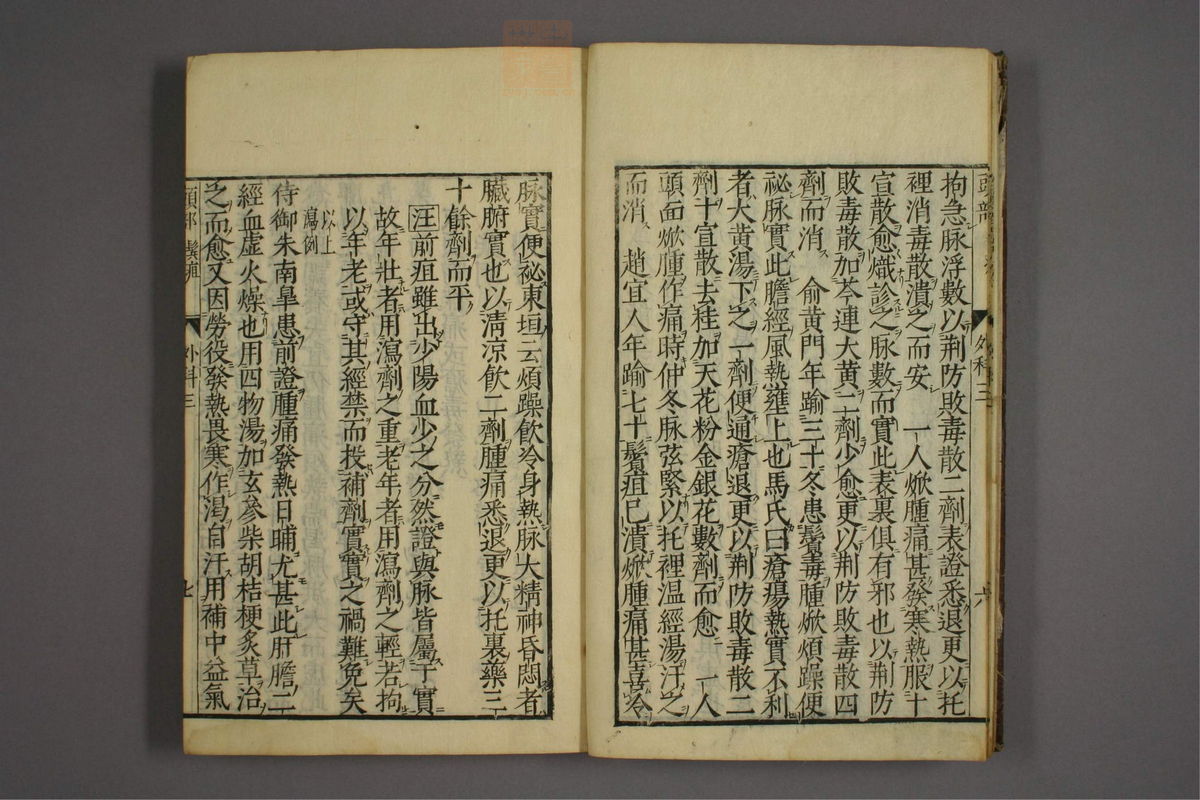 拘急脉浮數以荆防敗毒散二劑表證悉退更以托
裡消毒散潰之而安　一人焮腫痛甚發寒熱服十
宣散愈熾診之脉數而實此表裏俱有邪也以荆防
敗毒散加芩連大黄二劑少愈更以荆防敗毒散四
劑而消　俞黄門年踰三十冬患鬂毒腫焮煩躁便
祕脉實此膽經風熱壅上也馬氏曰瘡瘍熱實不利
者大黄湯下之一劑便通瘡退更以荆防敗毒散二
劑十宣散去桂加天花粉金銀花數劑而愈　一人
頭面焮腫作痛時仲冬脉弦緊以托裡温經湯汗之
而消　趙宜人年踰七十鬂疽已潰焮腫痛甚喜冷
脉實便祕東垣云煩躁飲冷身熱脉大精神昏悶者
臟腑實也以清涼飲二劑腫痛悉退更以托裏藥三
十餘劑而平
汪前疽雖出少陽血少之分然證與脉皆屬于實
故年壯者用瀉劑之重老年者用瀉劑之輕若拘
以年老或守其經禁而投補劑實實之禍難免矣
以上
瀉例
侍御朱南皐患前證腫痛發熱日晡尤甚此肝膽二
經血虚火燥也用四物湯加玄參柴胡桔梗炙草治
之而愈又因勞役發熱畏寒作渇自汗用補中益氣
外科三
六
外科三
七